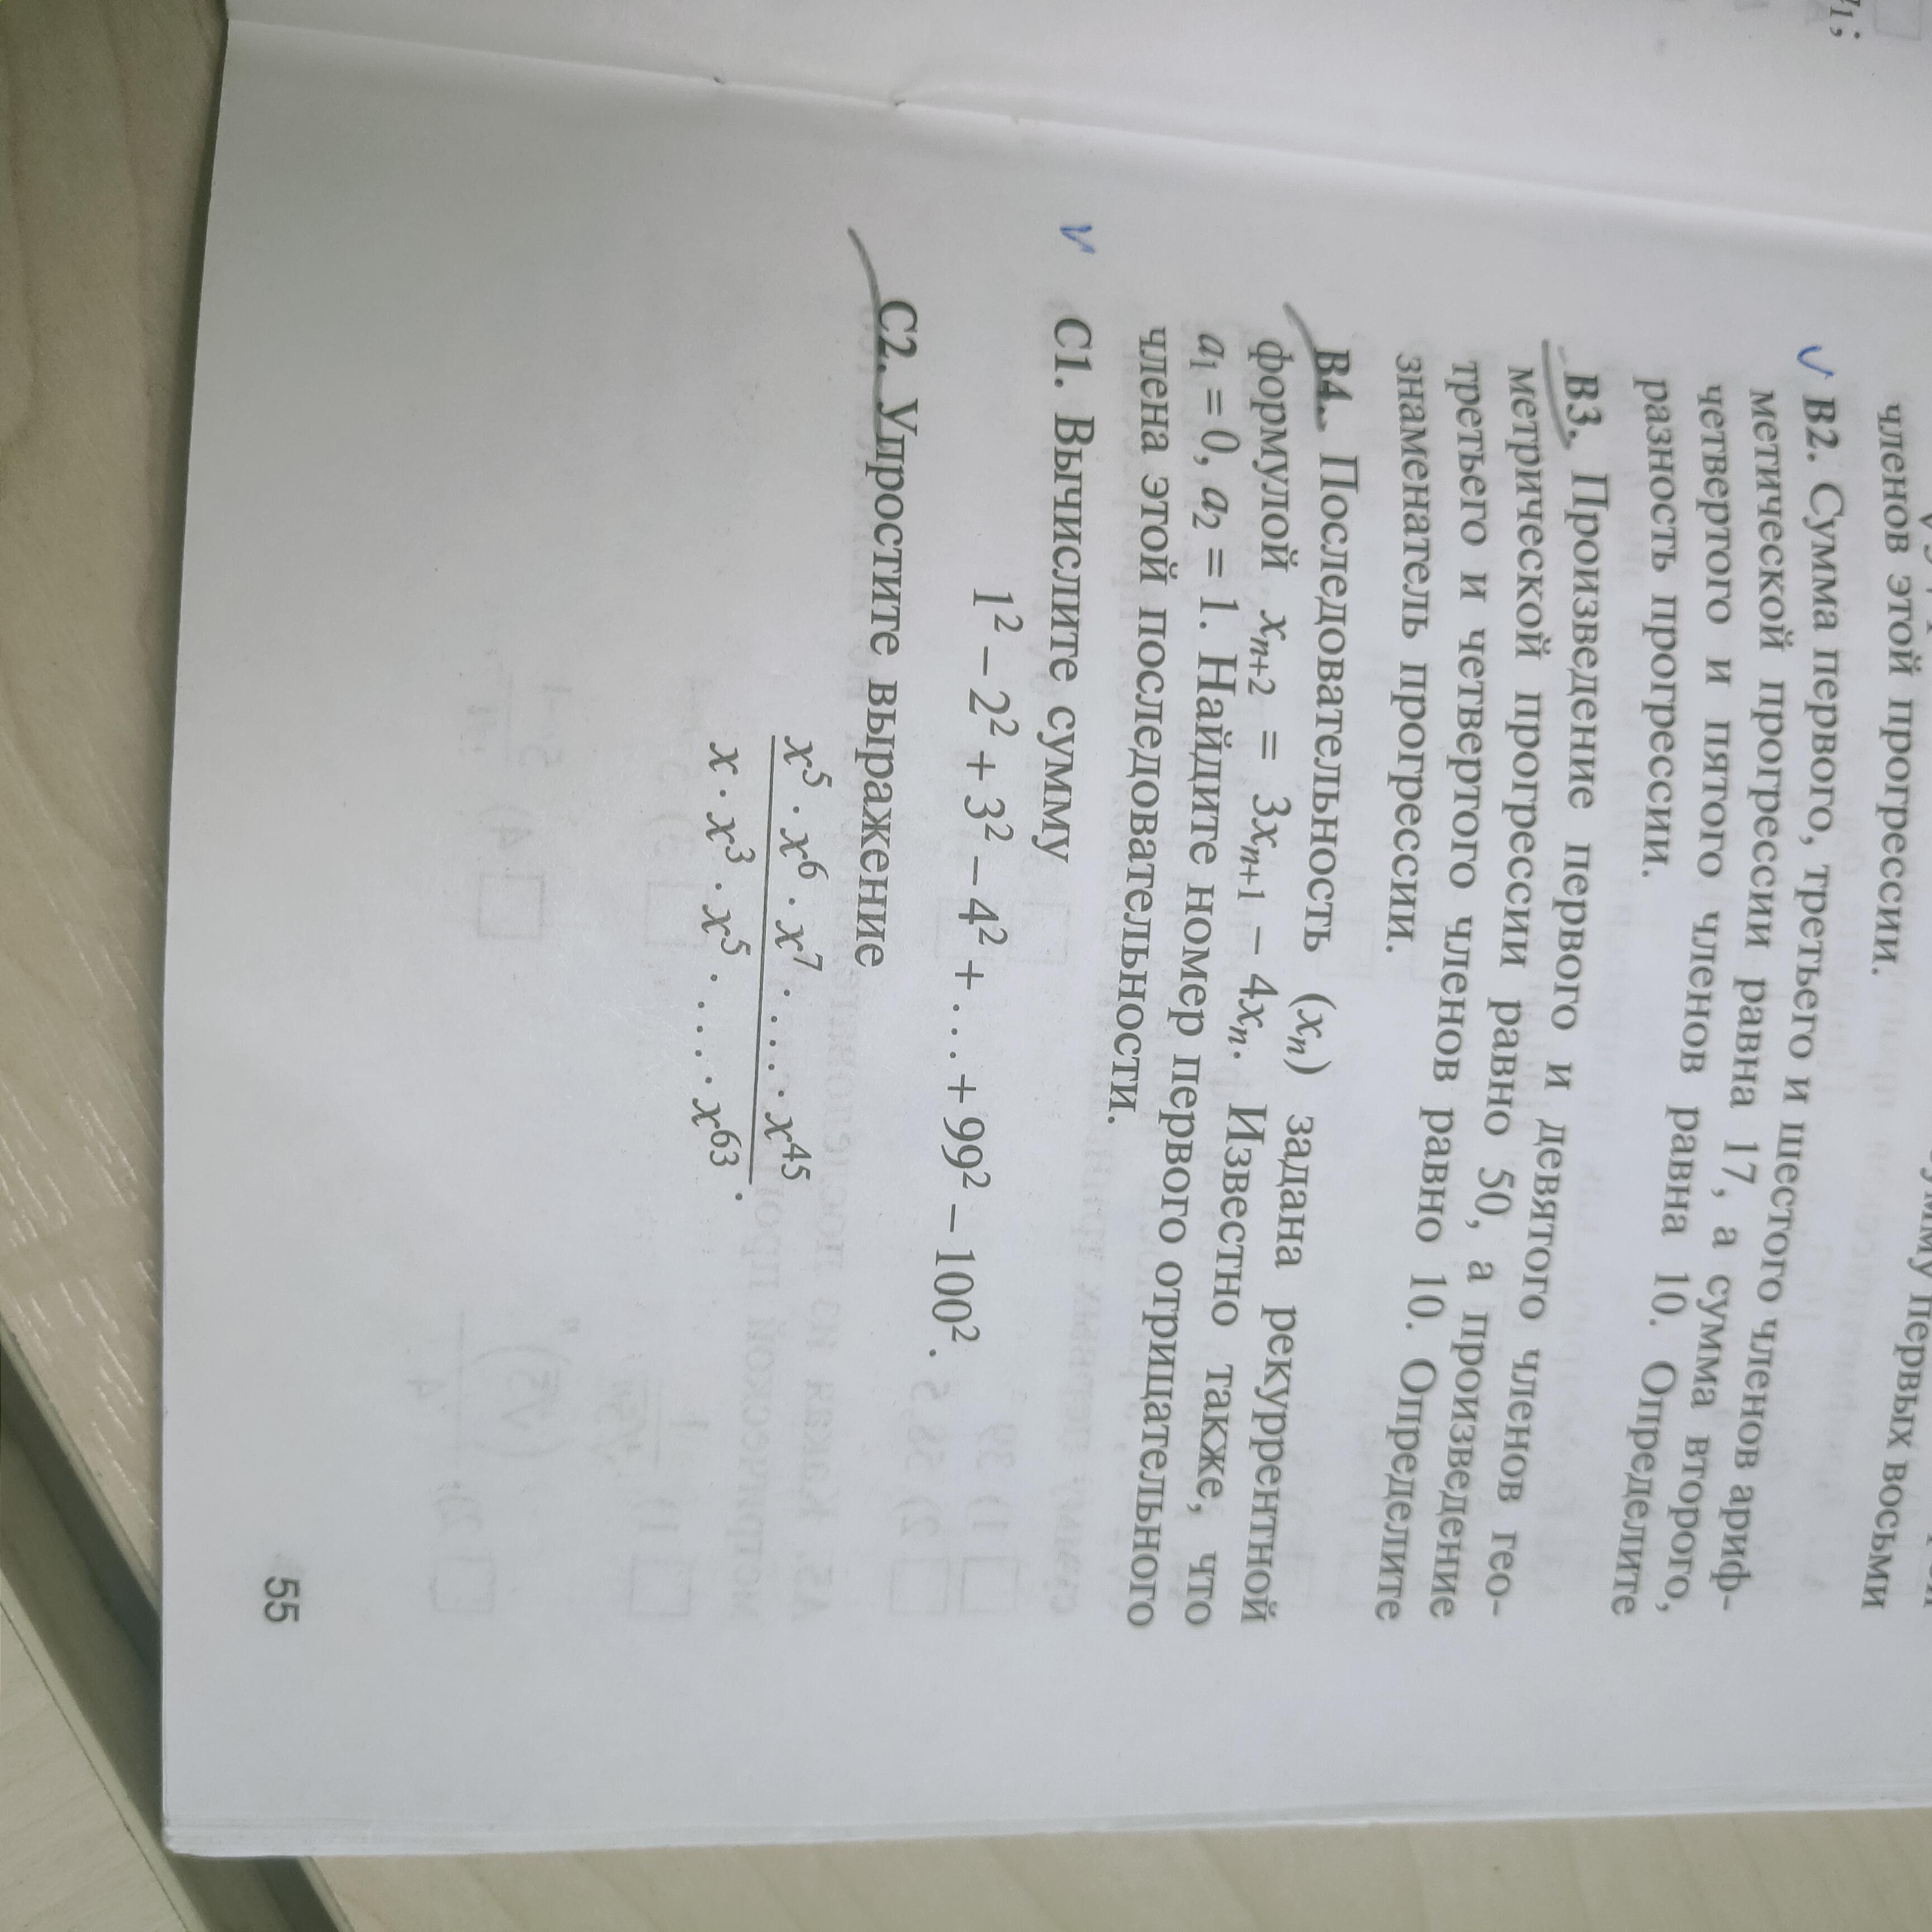 членов этой прогрессии.
В2. Сумма первого, третьего и шестого членов ариф-
метической прогрессии равна 17, а сумма второго,
четвертого и пятого членов равна 10. Определите
разность прогрессии.
В3. Произведение первого и девятого членов гео-
метрической прогрессии равно 50, а произведение
третьего и четвертого членов равно 10. Определите
знаменатель прогрессии.
В4. Последовательность (xₙ) задана рекуррентной
формулой xₙ₊₂ = 3xₙ₊₁ − 4xₙ. Известно также, что
a₁ = 0, a₂ = 1. Найдите номер первого отрицательного
члена этой последовательности.
С1. Вычислите сумму
1² − 2² + 3² − 4² + ... + 99² − 100².
С2. Упростите выражение
x⁵ · x⁶ · x⁷ · ... · x⁴⁵
x · x³ · x⁵ · ... · x⁶³ .
55